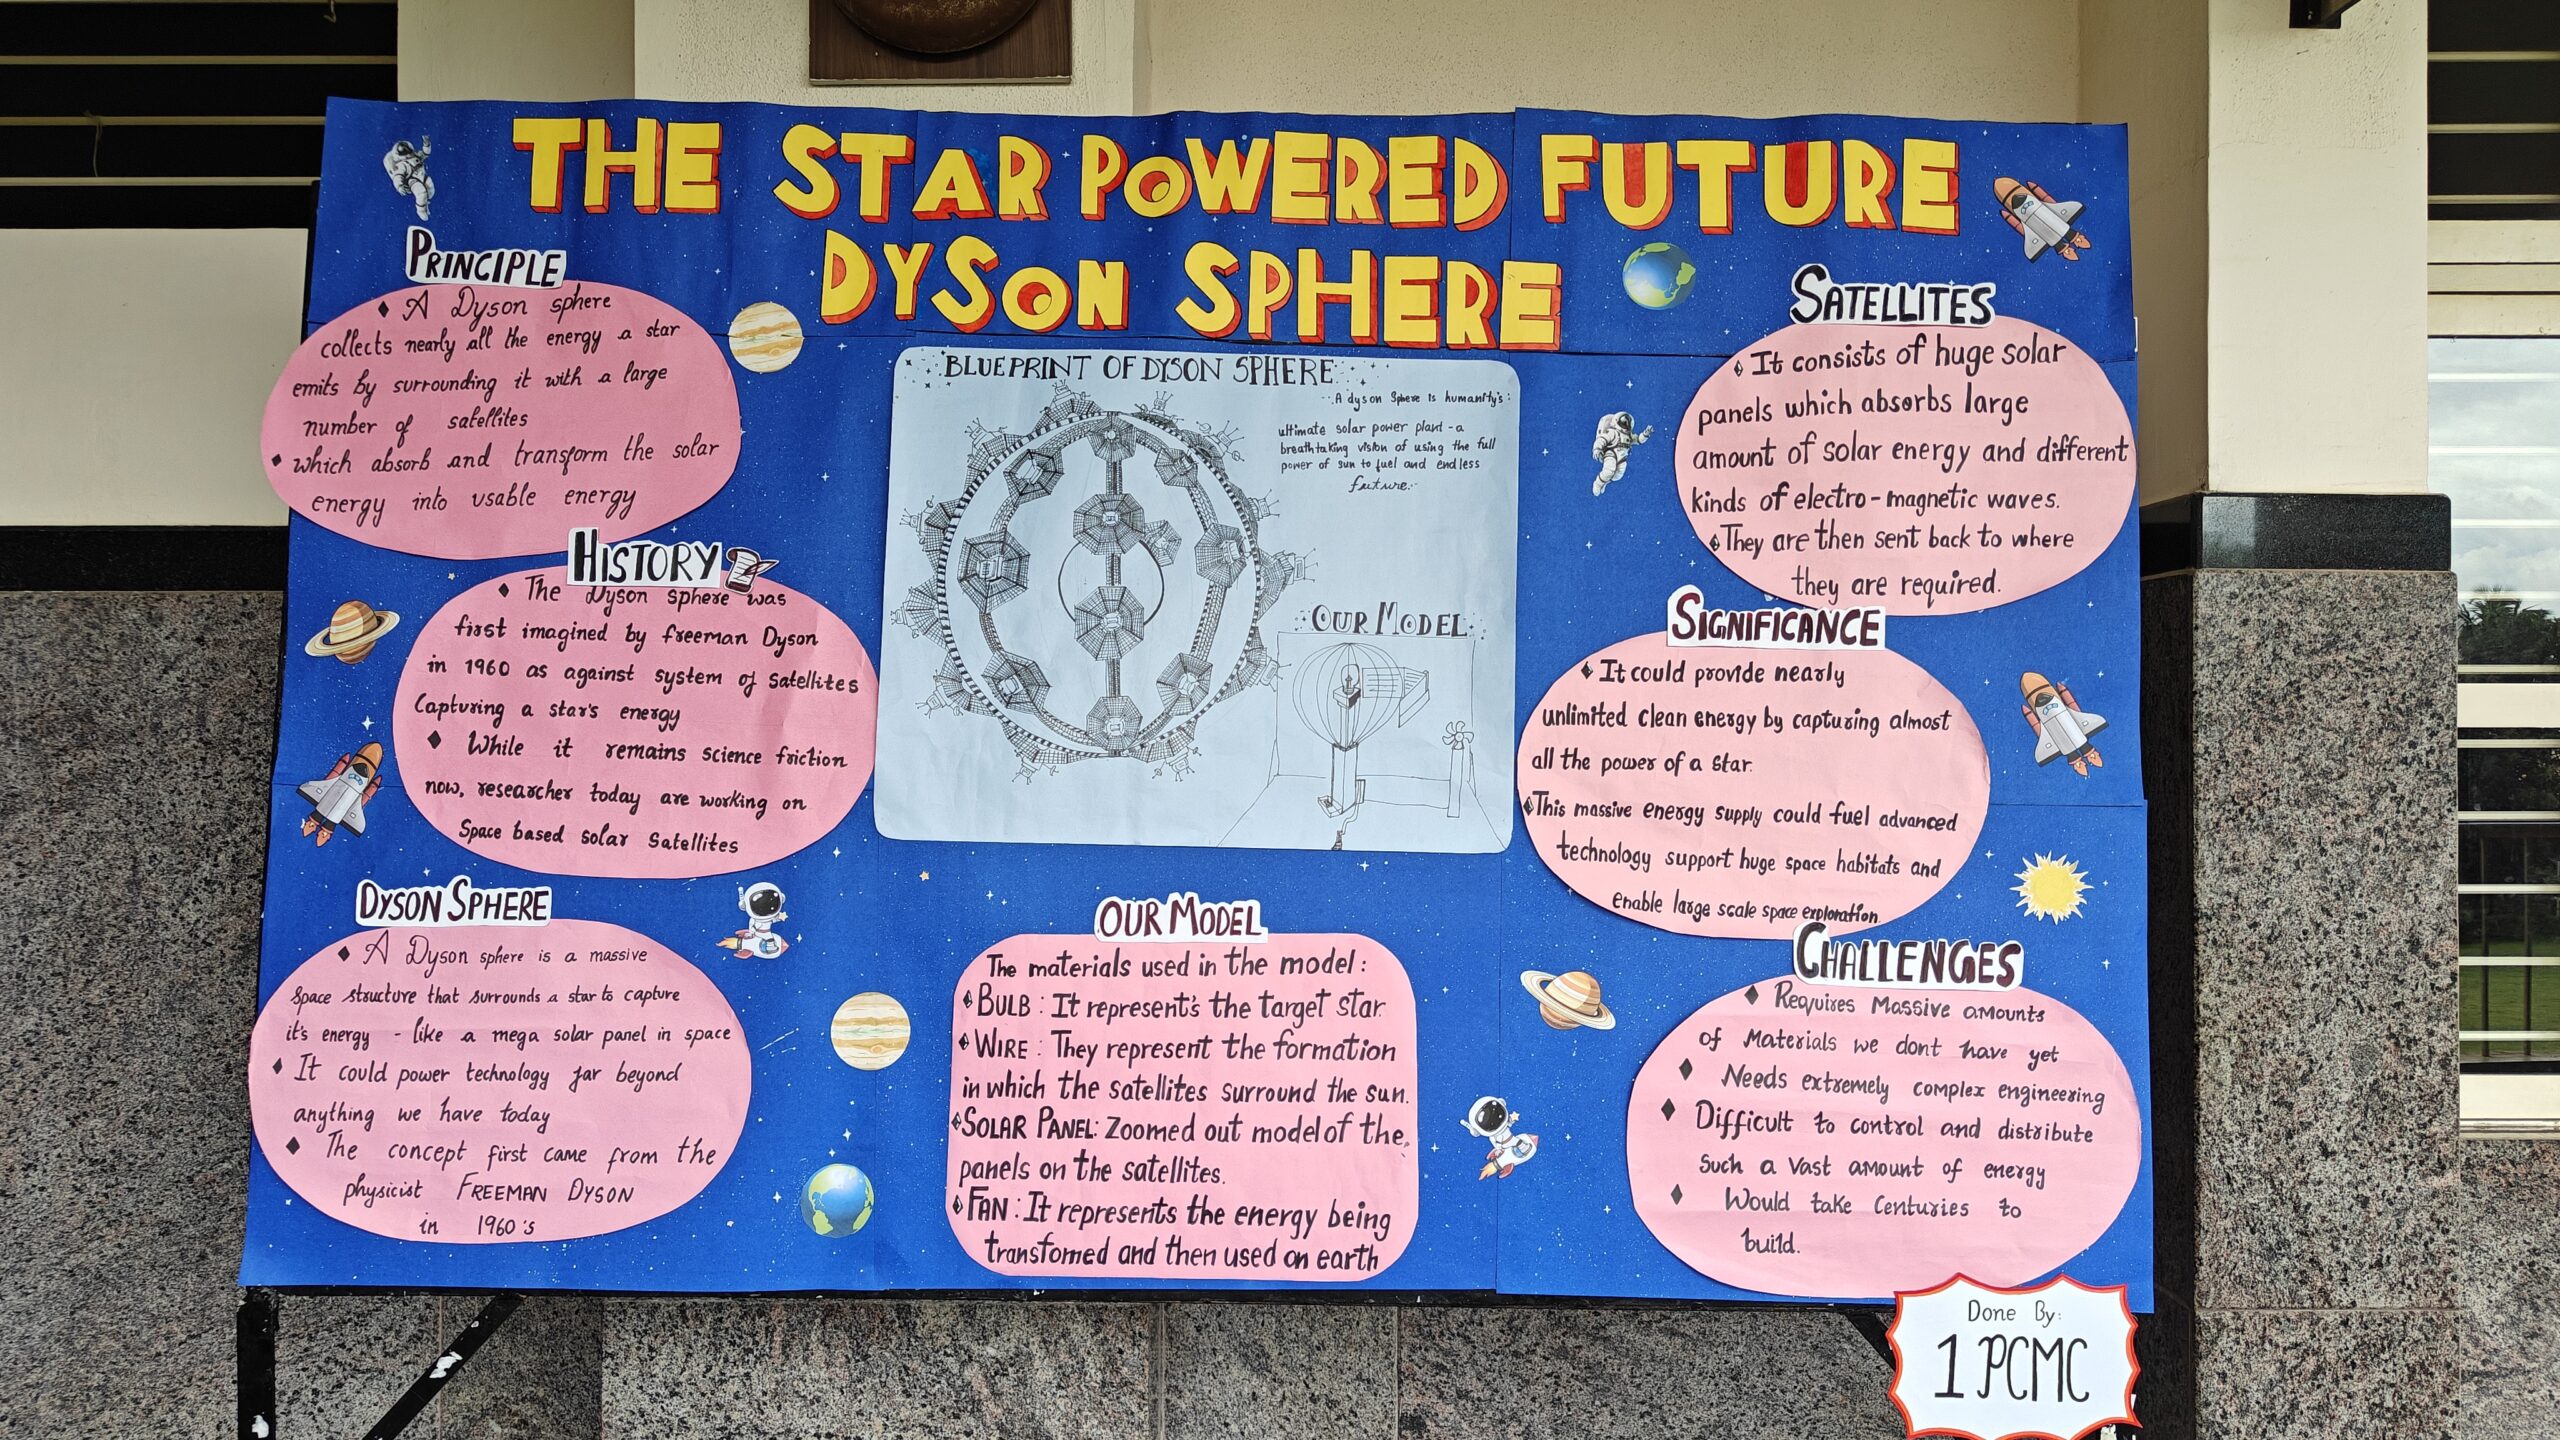 THE STAR POWERED FUTURE
DYSON SPHERE
PRINCIPLE
A Dyson sphere
collects nearly all the energy a star
emits by surrounding it with a large
number of satellites
which absorb and transform the solar
energy into usable energy
HISTORY
The Dyson sphere was
first imagined by freeman Dyson
in 1960 as against system of satellites
Capturing a star's energy
While it remains science friction
now, researcher today are working on
Space based solar satellites
DYSON SPHERE
A Dyson sphere is a massive
space structure that surrounds a star to capture
it's energy - like a mega solar panel in space
It could power technology far beyond
anything we have today
The concept first came from the
physicist FREEMAN DYSON
in 1960's
BLUEPRINT OF DYSON SPHERE
A dyson sphere is humanity's
ultimate solar power plant - a
breathtaking vision of using the full
power of sun to fuel and endless
future.
OUR MODEL
OUR MODEL
The materials used in the model:
BULB: It represent's the target star
WIRE: They represent the formation
in which the satellites surround the sun.
SOLAR PANEL: Zoomed out model of the
panels on the satellites.
FAN: It represents the energy being
transfomed and then used on earth
SATELLITES
It consists of huge solar
panels which absorbs large
amount of solar energy and different
kinds of electro-magnetic waves.
They are then sent back to where
they are required.
SIGNIFICANCE
It could provide nearly
unlimited clean energy by capturing almost
all the power of a star.
This massive energy supply could fuel advanced
technology support huge space habitats and
enable large scale space exploration
CHALLENGES
Requires Massive amounts
of Materials we dont have yet
Needs extremely complex engineering
Difficult to control and distribute
such a vast amount of energy
Would take centuries to
build.
Done By:
1 PCMC